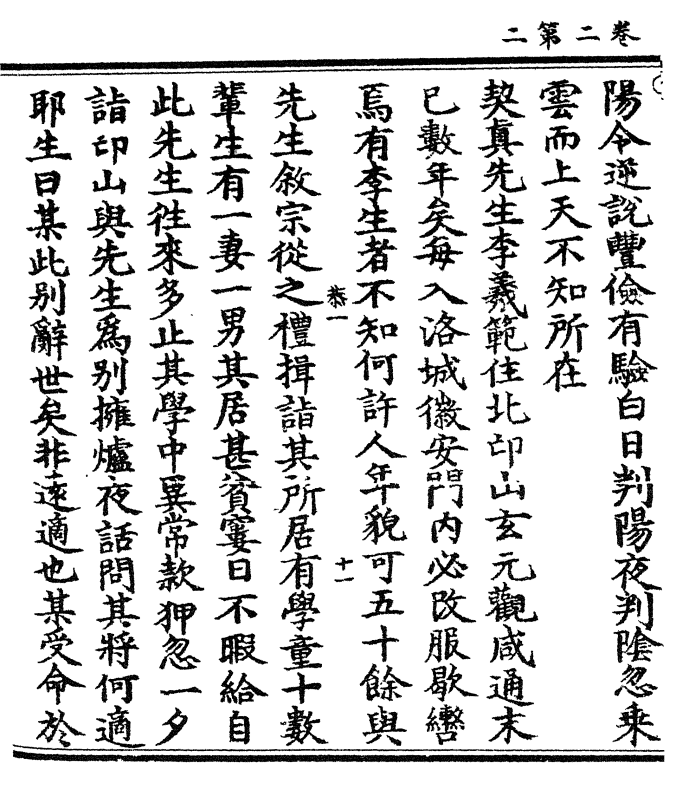 卷二第二
陽令逆說豐儉有驗白日判陽夜判陰忽乘
雲而上天不知所在
契真先生李義範住北邙山玄元觀咸通末
已數年矣每入洛城徽安門内必改服歇轡
焉有李生者不知何許人年貌可五十餘與
恭一
十一
先生敘宗從之禮揖詣其所居有學童十數
輩生有一妻一男其居甚貧窶日不暇給自
此先生徃來多止其學中異常款狎忽一夕
詣邙山與先生爲別擁爐夜話問其將何適
耶生曰某此別辭世矣非遠適也某受命於